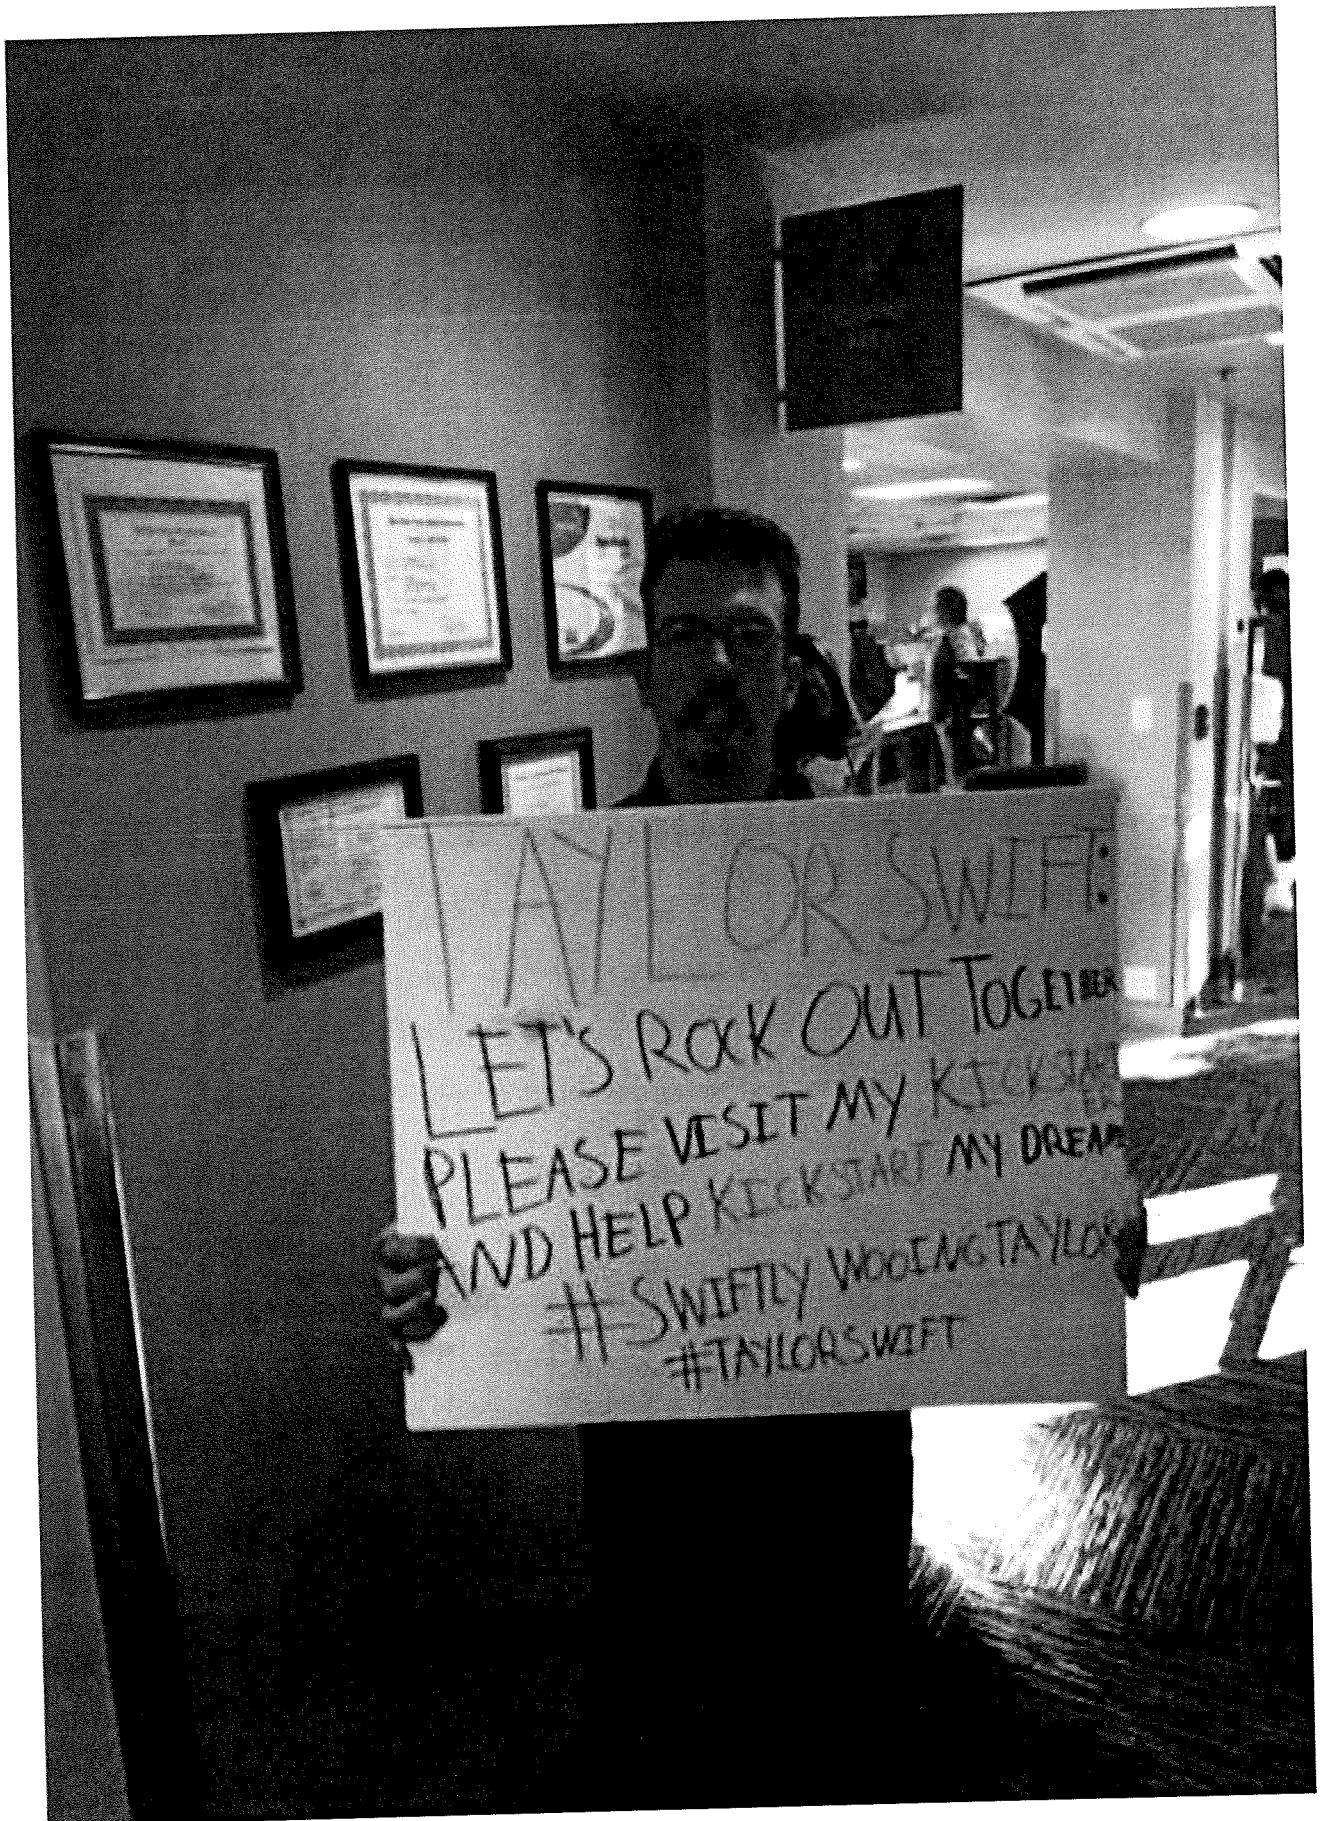 TAYLOR SWIFT:
LET'S ROCK OUT TOGETHER
PLEASE VISIT MY KICKSTARTER
AND HELP KICKSTART MY DREAM
#SWIFTLY WOOINGTAYLOR
#TAYLORSWIFT